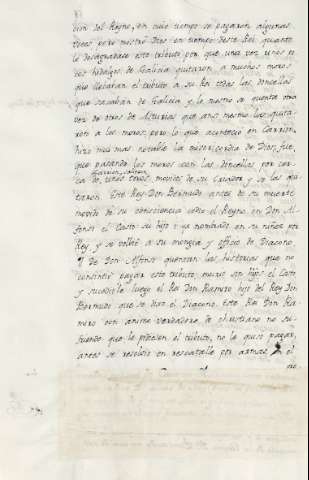 cion del Reyno, en cuio tiempo se pagaron algunas
veces pero mostró Dios en tiempo deste Rei quanto
le desagradava este tributo por que una vez unos
cos hidalgos de Galicia quitaron a muchos moros
que llevavan el tributo a su Rei todas las doncellas
que sacavan de Galicia y lo mesmo se cuenta otra
vez de otros de Asturias que ansi mesmo las quita-
ron a los moros pero lo que acontecio en Carrion
hizo mas notable la misericordia de Dios, fue,
que pasando los moros con las doncellas por cer-
ca de toros, movidos de su Criador y se las qui-
taron. Este Rey Don Bermudo antes de su muerte
movido de su consciencia cedio el Reyno en Don Al-
fonso el Casto su hijo ya nombrado en su niñez por
Rey, y se volbió a su mongia y officio de Diacono
de Don Alfonso quentan las historias que no
consintio pagar este tributo, murio sin hijos el Casto
y sucediole luego el Rei Don Ramiro hijo del Rey Don
Bermudo que se dixo el Diacono. Este Rei Don Ra-
miro con animo verdadero de christiano no su-
friendo que le pidiesen el tributo, no le quiso pagar,
antes se resolvio en rescatalle por armas en el